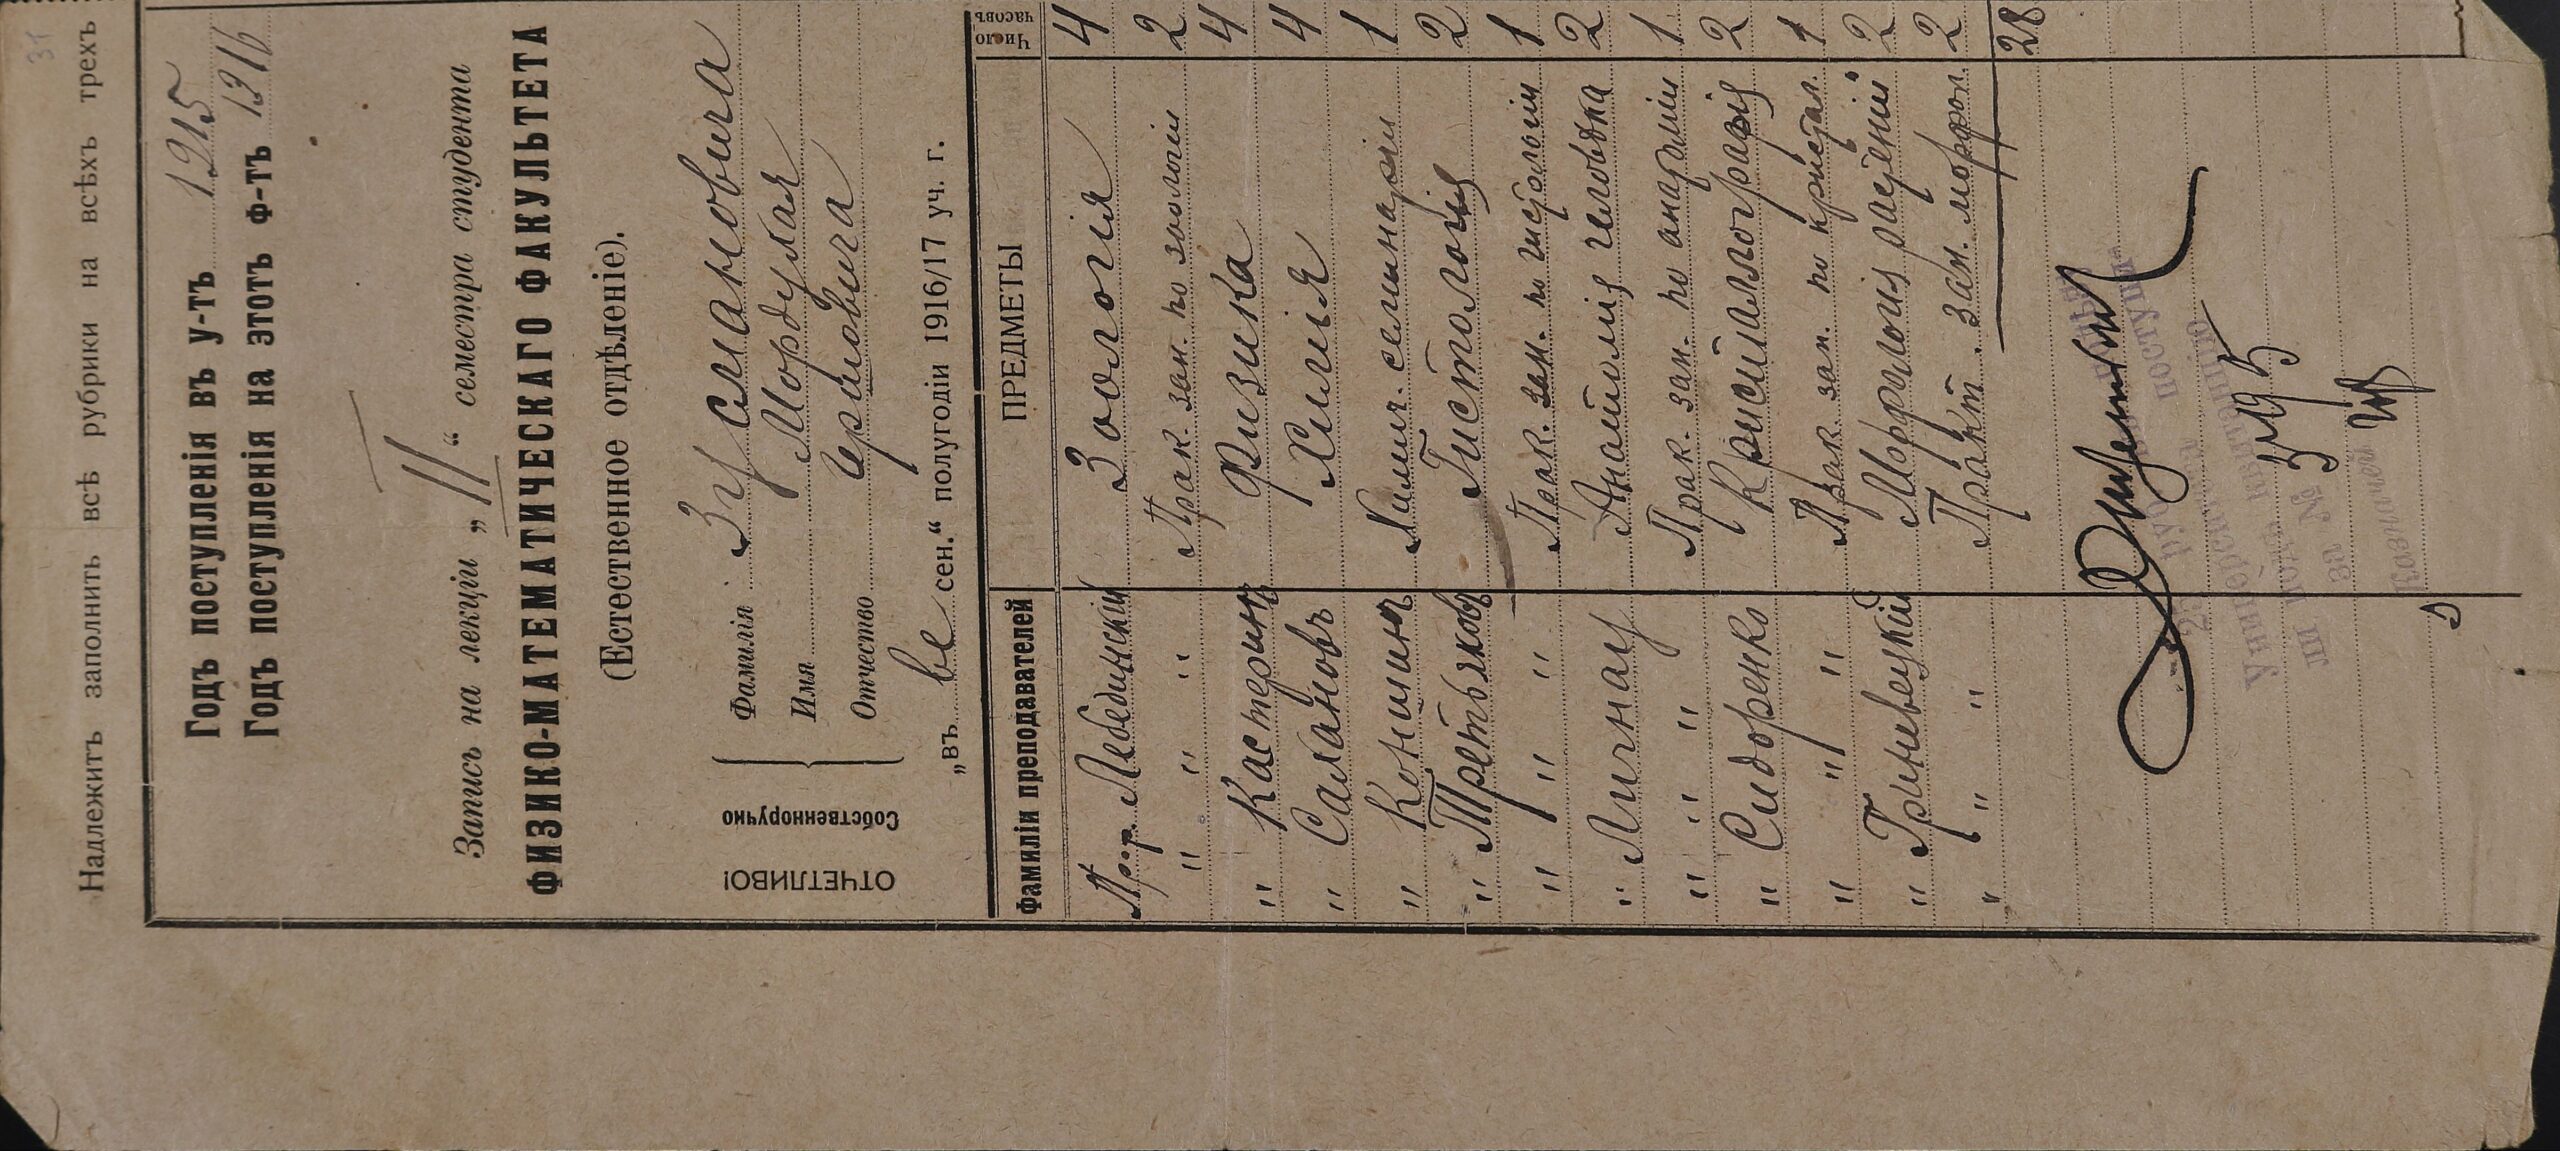 31
Надлежитъ заполнить всѣ рубрики на всѣхъ трехъ
Годъ поступленія въ у-тъ 1915
Годъ поступленія на этотъ ф-тъ 1916
Запись на лекціи „II“ семестра студента
ФИЗИКО-МАТЕМАТИЧЕСКАГО ФАКУЛЬТЕТА
(Естественное отдѣленіе).
ОТЧЕТЛИВО!
Собственноручно
Фамилія Зусмановича
Имя Мордухая
Отчество
„въ ве сен.“ полугодіи 1916/17 уч. г.
Фамиліи преподавателей ПРЕДМЕТЫ Число часовъ
Проф. Лебединскій Зоологія 4
" " " Прак. зан. по зоологіи 2
" Кастеринъ Физика 4
" Салановъ Химія 4
" Конинъ Химич. семинарій 1
" Третьяковъ Гистологія 2
" " " Прак. зан. по гистологіи 1
" Лигнау Анатомія человѣка 2
" " " Прак. зан. по анатоміи 1
" Сидоренко Кристаллографія 2
" " " Прак. зан. по кристал. 1
" Гриневецкій Морфологія растеній 2
" " " Практ. зан. морфол. 2
28
руб. поступи
Университета
ли подъ квитанцію
за №
Казначей